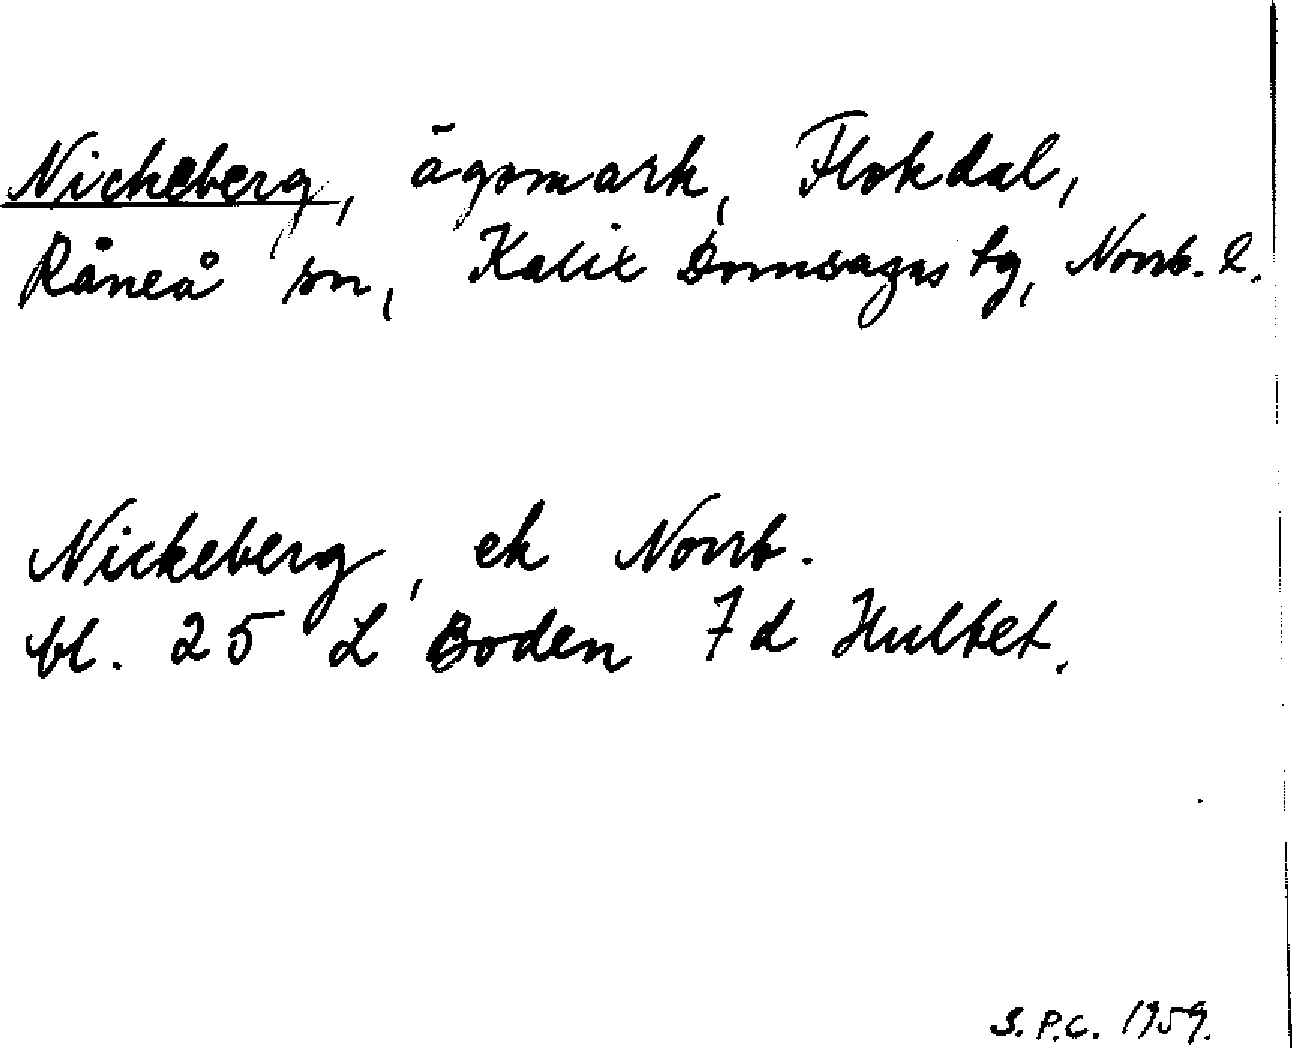 Nickeberg, ägomark, Flokdal,
Råneå sn, Kalix Domsagas tg, Norrb. l.
Nickeberg, ek Norrb.
bl. 25 L Boden 7d Hultet.
S.P.C. 1959.